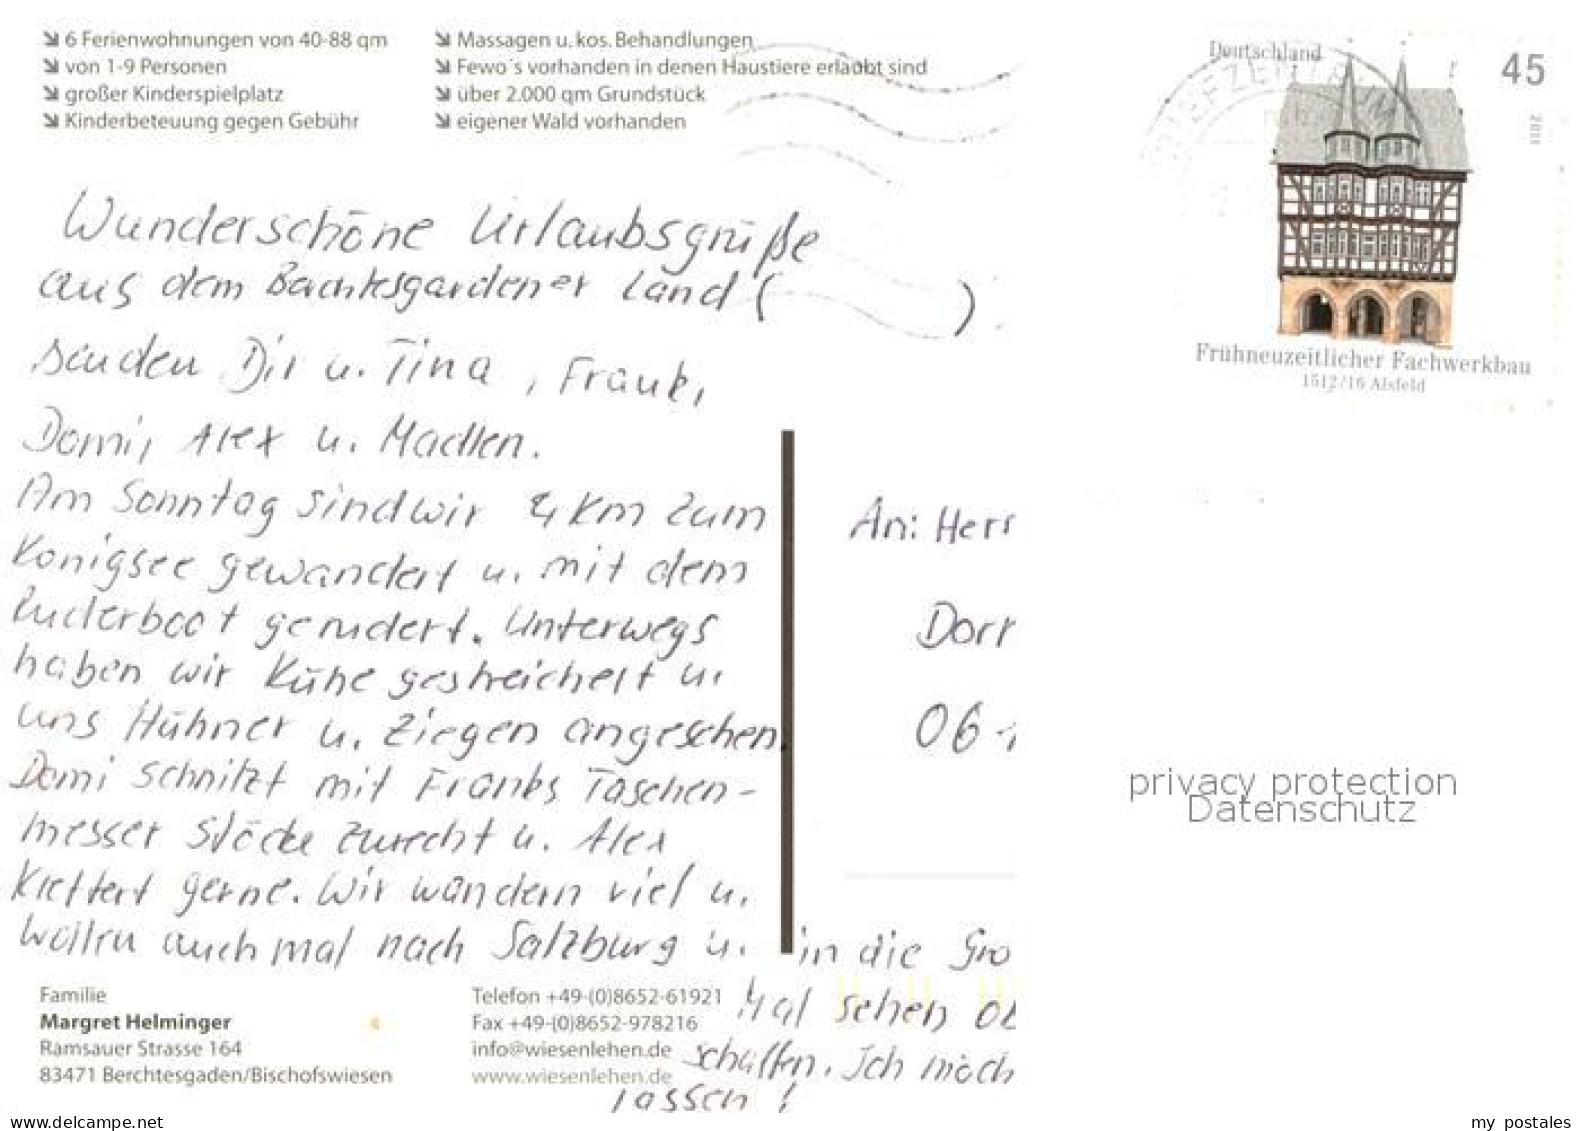 ↘ 6 Ferienwohnungen von 40-88 qm
↘ von 1-9 Personen
↘ großer Kinderspielplatz
↘ Kinderbeteuung gegen Gebühr
↘ Massagen u. kos. Behandlungen
↘ Fewo´s vorhanden in denen Haustiere erlaubt sind
↘ über 2.000 qm Grundstück
↘ eigener Wald vorhanden
Deutschland
45
2011
Frühneuzeitlicher Fachwerkbau
1512/16 Alsfeld
BRIEFZENTRUM
Wunderschöne Urlaubsgrüße
aus dem Bachtesgardener Land (          )
senden Dir u. Tina, Frank,
Domi, Alex u. Madlen.
Am Sonntag sind wir 4 km zum
Königsee gewandert u. mit dem
Ruderboot gerudert. Unterwegs
haben wir Kühe gestreichelt u.
uns Hühner u. Ziegen angesehen.
Domi schnitzt mit Franks Taschen-
messer Stöcke zurecht u. Alex
klettert gerne. Wir wandern viel u.
wollen auch mal nach Salzburg u. in die Gro
Mal sehen ob
schaffen. Ich möch
lassen!
An: Herr
Dorr
06
Familie
Margret Helminger
Ramsauer Strasse 164
83471 Berchtesgaden/Bischofswiesen
Telefon +49-(0)8652-61921
Fax +49-(0)8652-978216
info@wiesenlehen.de
www.wiesenlehen.de
privacy protection
Datenschutz
www.delcampe.net
my_postales